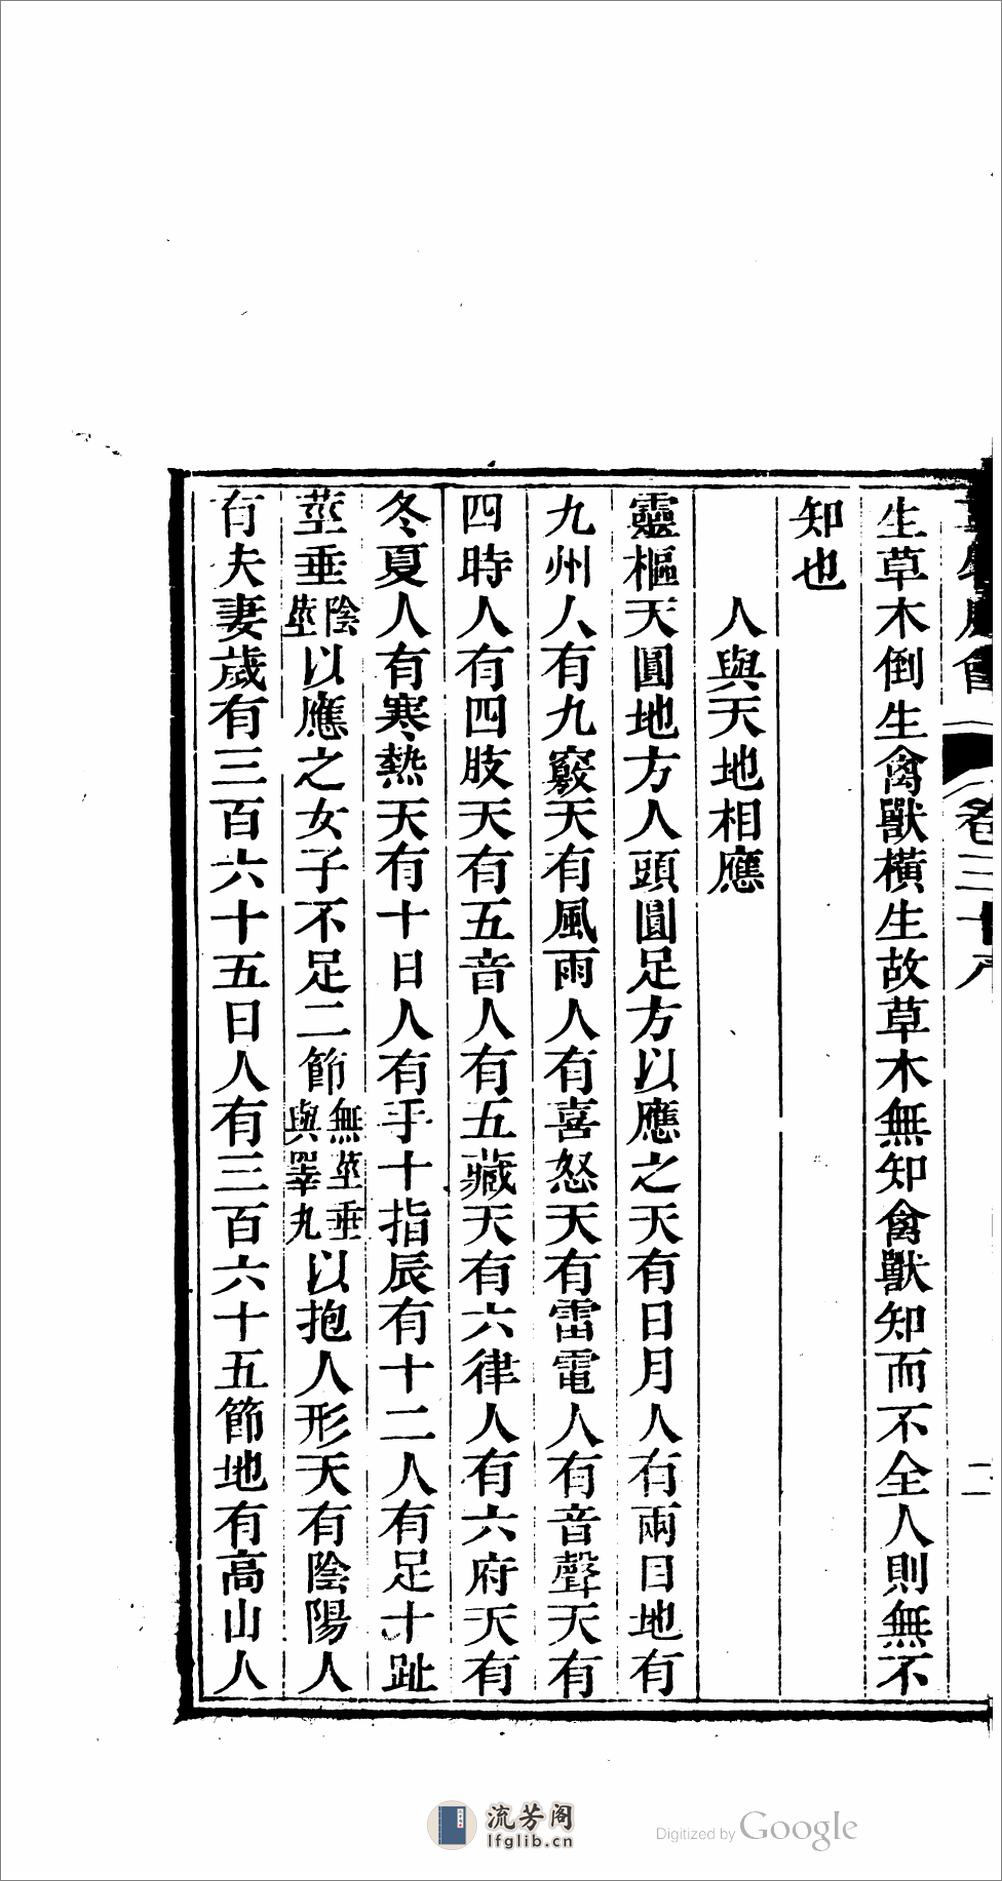 卷三十八
二
生草木倒生禽獸橫生故草木無知禽獸知而不全人則無不
知也
人與天地相應
靈樞天圓地方人頭圓足方以應之天有日月人有兩目地有
九州人有九竅天有風雨人有喜怒天有雷電人有音聲天有
四時人有四肢天有五音人有五藏天有六律人有六府天有
冬夏人有寒熱天有十日人有手十指辰有十二人有足十趾
莖垂陰莖以應之女子不足二節無莖垂與睪丸以抱人形天有陰陽人
有夫妻歲有三百六十五日人有三百六十五節地有高山人
流芳阁
lfglib.cn
Digitized by Google